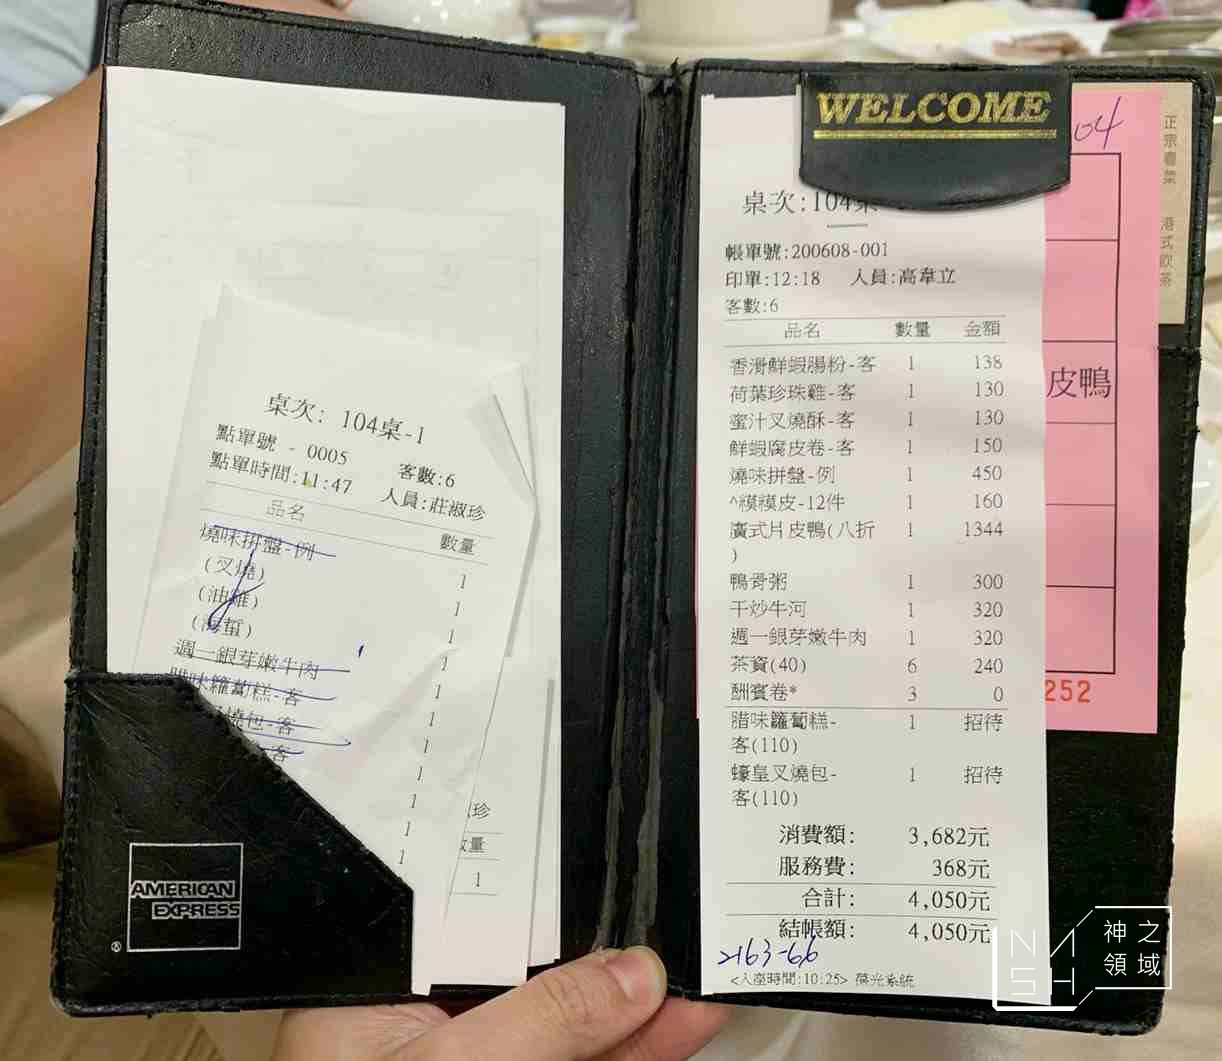 桌次: 104桌-1
點單號 - 0005 客數:6
點單時間:11:47 人員:莊淑珍
品名 數量
燒味拼盤-例 1
(叉燒) 1
(油雞) 1
(海蜇) 1
週一銀芽嫩牛肉 1
腊味籮蔔糕-客 1
燒包-客 1
客 1
1
1
1
珍
數量
1
AMERICAN
EXPRESS
®
WELCOME
桌次:104桌
帳單號:200608-001
印單:12:18 人員:高韋立
客數:6
品名 數量 金額
香滑鮮蝦腸粉-客 1 138
荷葉珍珠雞-客 1 130
蜜汁叉燒酥-客 1 130
鮮蝦腐皮卷-客 1 150
燒味拼盤-例 1 450
^饃饃皮-12件 1 160
廣式片皮鴨(八折 1 1344
)
鴨骨粥 1 300
干炒牛河 1 320
週一銀芽嫩牛肉 1 320
茶資(40) 6 240
酬賓卷* 3 0
腊味籮蔔糕- 1 招待
客(110)
蠔皇叉燒包- 1 招待
客(110)
消費額: 3,682元
服務費: 368元
合計: 4,050元
結帳額: 4,050元
2163-66
<入座時間:10:25> 葆光系統
04
皮鴨
252
正宗粵菜 港式飲茶
NASH
神之
領域